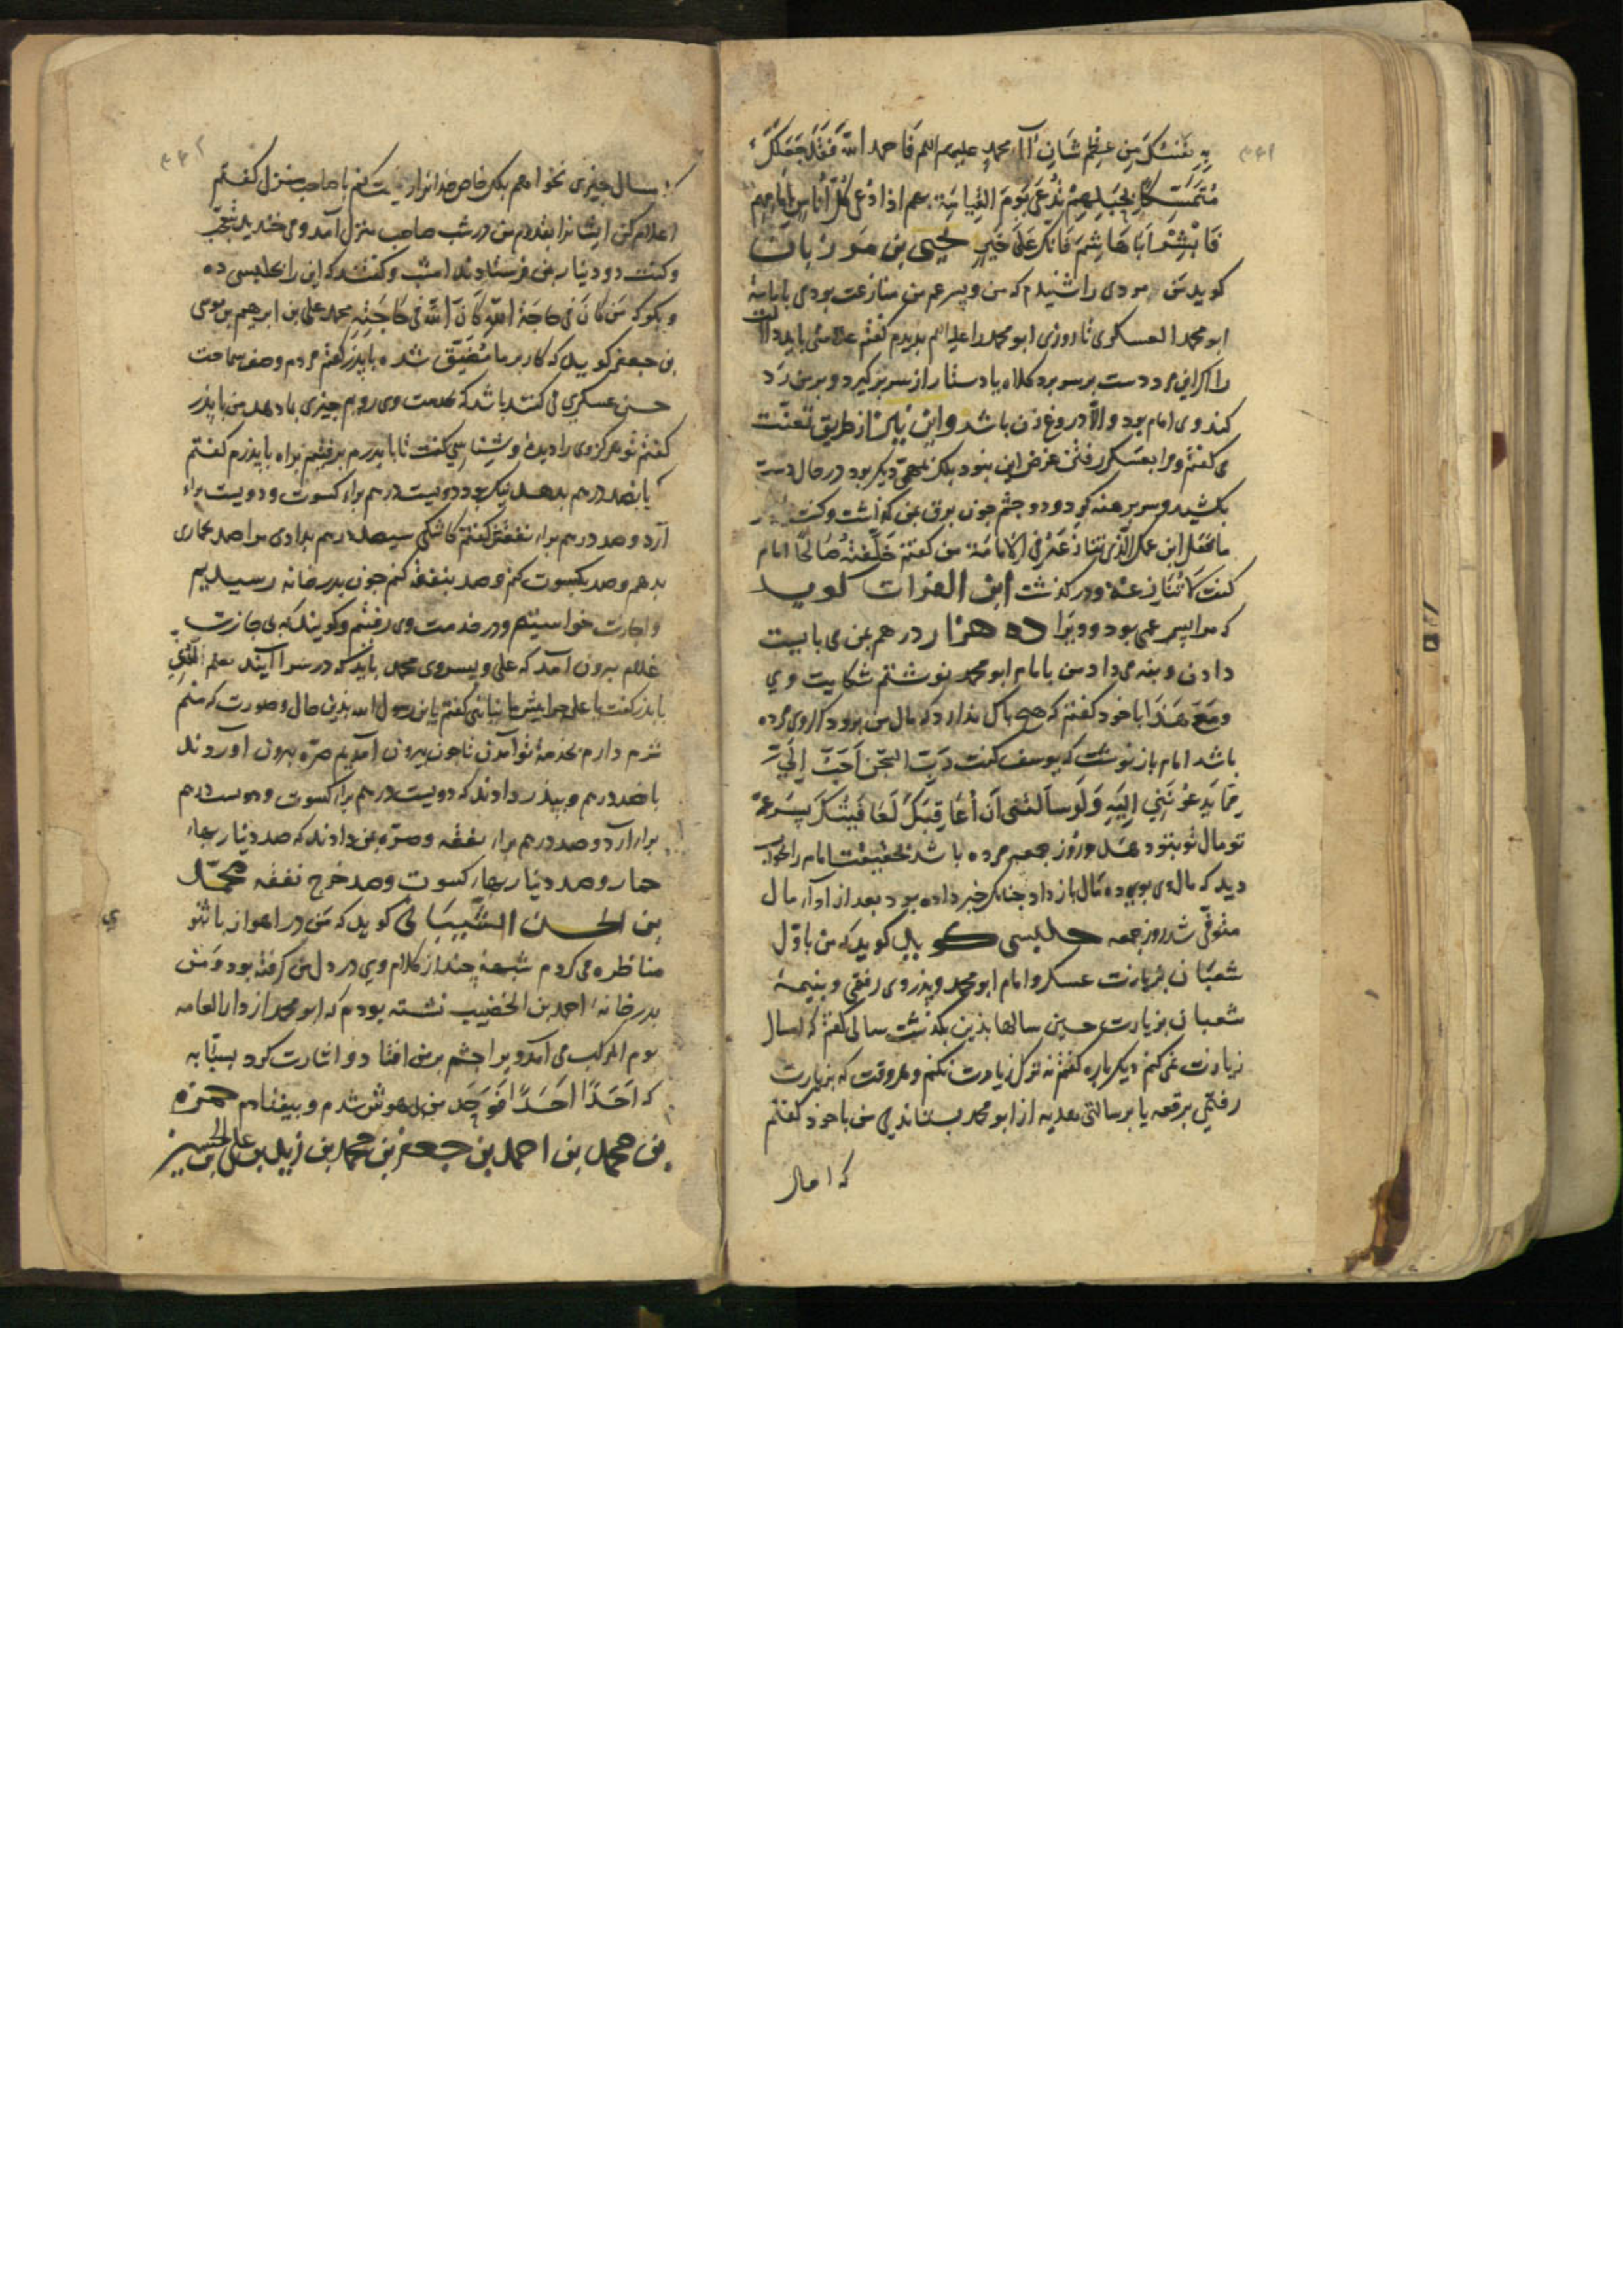 به نفسک من عظم شان آل محمد علیهم السلم فاحمد الله فقد جعلک
متمسکا بحبلهم تدعی یوم القیامة بهم اذا دعی کل اناس بامامهم
فابشر ابا هاشم فانک علی خیر یحیی بن مرزبان
کوید من مردی را شنیدم که من و پسر عم من منازعت بودی بامامة
ابو محمد العسکری تا روزی ابو محمد را علیه السلم بدیدم کفتم علامتی باید
را اکر این مرد دست بر سر برد کلاه یا دستار از سر برکیرد و بر من رد
کند وی امام بود و الا دروغ زن باشد و این نیز از طریق تعنت
می کفتم و مرا بعسکر رفتن غرض این بنود بلکه مهمی دیکر بود در حال دست
بکشید و سر برهنه کرد و دو چشم جون برق بمن کذاشت و کفت
ما فعل ابن عمک الذی تنازعه فی الامامة من کفتم خلفته صالحا امام
کفت لا تنازعه و در کذشت ابن الفرات کوید
که مرا پسر عمی بود و ویرا ده هزار درهم بمن می بایست
دادن و بنه می داد من بامام ابو محمد نوشتم شکایت وی
و مع هذا با خود کفتم که هیچ باک ندارد که مال من برود کر وی مرده
باشد امام باز نوشت که یوسف کفت رب السجن احب الی
مما یدعوننی الیه ولو سالتنی ان اعاقبک لعافیتک پسر عم
تو مال تو بتو دهد و روز جمعه مرده باشد بحقیقت امام را بخواب
دید که مال وی بوی ده مال باز داد جنانک خبر داده بود بعد از اداء مال
متوفی شد روز جمعه حلیسی کوید که من باول
شعبان بزیارت عسکر و امام ابو محمد و پدر وی رفتی و بنیمه
شعبان بزیارت حسین سالها بذین بکذشت سالی کفتم که امسال
زیارت نمی کنم دیکر باره کفتم نه ترک زیارت نکنم و هر وقت که بزیارت
رفتمی برقعه یا برسالتی هدیه از ابو محمد بستاندی من با خود کفتم
که امسال
سال جیزی نخواهم بلک خاص خدا را زیارت کنم با صاحب منزل کفتم
اعلام مکن ایشانرا بقدوم من در شب صاحب منزل آمد و می خندید بتعجب
و کفت دو دینار بمن فرستادند امشب و کفتند که این را بحلیسی ده
و بکو که من کان فی حاجة الله کان الله فی حاجته محمد علی بن ابرهیم بن موسی
بن جعفر کوید که کار بر ما مضیق شده با پدر کفتم مردم وصف سماحت
حسن عسکری می کنند باشد که بخدمت وی رویم جیزی بما دهد من با پدر
کفتم تو هرکز وی را دیدهٔ و شناسی کفت نا با پدرم برفتم براه با پدرم کفتم
پانصد درهم بدهد نیک بود دویست درهم براء کسوت و دویست براء
آرد و صد درهم براء نفقه من کفتم کاشکی سیصد درهم بدادی مرا صد بمکاری
بدهم و صد بکسوت کنم و صد بنفقه کنم جون بدر خانه رسیدیم
و اجازت خواستیم و در خدمت وی رفتم و کویند که بی اجازت
غلام بیرون آمد که علی و پسر وی محمد باید که در سرا آیند
با پدر کفت یا علی چرا پیش ما نیائی کفتم یا بن رسول الله بذین حال و صورت که منم
شرم دارم بخدمة تو آمدن تا جون بیرون آمدیم صره بیرون آوردند
پانصد درهم و بپدر دادند که دویست درهم براء کسوت و دویست درهم
براء آرد و صد درهم براء نفقه و صره بمن دادند که صد دینار بهاء
حمار و صد دینار بهاء کسوت و صد خرج نفقه محمد
بن الحسن الشیبانی کوید که من در اهواز با ثنو
مناظره می کردم شبهة چند از کلام وی در دل من کرفته بود و من
بدر خانهٔ احمد بن الخضیب نشسته بودم که ابو محمد از دار العامه
یوم الموکب می آمد ویرا چشم بر من افتاد و اشارت کرد بسبابه
که احدا احدا فوحد من بیهوش شدم و بیفتادم حمزه
بن محمد بن احمد بن جعفر بن محمد بن زید بن علی بن الحسین